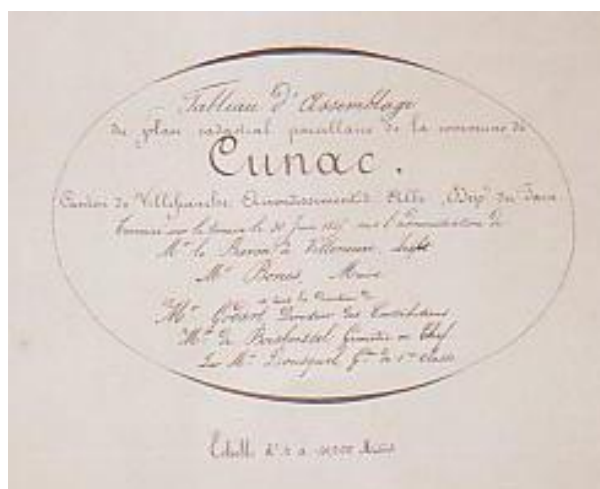 Tableau d'Assemblage
du plan cadastral parcellaire de la commune de
Cunac.
Canton de Villefranche Arrondissement d'Albi, Dép.t du Tarn
Terminé sur le terrain le 30 Juin sous l'administration de
M.r le Baron de Villeneuve, Préfet
M.r Maire
et sous la Direction de
M.r Godard Directeur des Contributions
M.r de Géomètre en Chef
Par M.r G.tre de 1.re classe
Echelle d'1 à